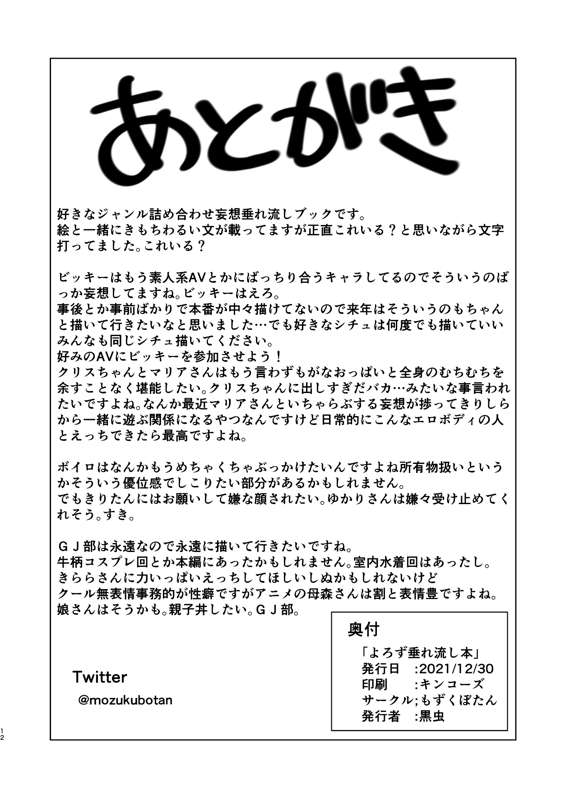 あとがき
好きなジャンル詰め合わせ妄想垂れ流しブックです。
絵と一緒にきもちわるい文が載ってますが正直これいる？と思いながら文字
打ってました。これいる？
ビッキーはもう素人系AVとかにばっちり合うキャラしてるのでそういうのば
っか妄想してますね。ビッキーはえろ。
事後とか事前ばかりで本番が中々描けてないので来年はそういうのもちゃん
と描いて行きたいなと思いました…でも好きなシチュは何度でも描いていい
みんなも同じシチュ描いてください。
好みのAVにビッキーを参加させよう！
クリスちゃんとマリアさんはもう言わずもがなおっぱいと全身のむちむちを
余すことなく堪能したい。クリスちゃんに出しすぎだバカ…みたいな事言われ
たいですよね。なんか最近マリアさんといちゃらぶする妄想が捗ってきりしら
から一緒に遊ぶ関係になるやつなんですけど日常的にこんなエロボディの人
とえっちできたら最高ですよね。
ボイロはなんかもうめちゃくちゃぶっかけたいんですよね所有物扱いという
かそういう優位感でしこりたい部分があるかもしれません。
でもきりたんにはお願いして嫌な顔されたい。ゆかりさんは嫌々受け止めてく
れそう。すき。
ＧＪ部は永遠なので永遠に描いて行きたいですね。
牛柄コスプレ回とか本編にあったかもしれません。室内水着回はあったし。
きららさんに力いっぱいえっちしてほしいしぬかもしれないけど
クール無表情事務的が性癖ですがアニメの母森さんは割と表情豊ですよね。
娘さんはそうかも。親子丼したい。ＧＪ部。
奥付
「よろず垂れ流し本」
発行日　:2021/12/30
印刷　　:キンコーズ
サークル;もずくぼたん
発行者　:黒虫
Twitter
@mozukubotan
12